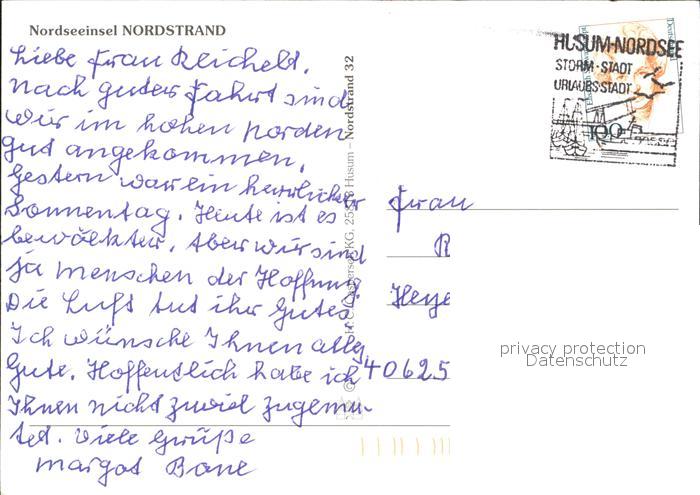 Nordseeinsel NORDSTRAND
Liebe Frau Reichelt,
nach guter Fahrt sind
wir im hohen Norden
gut angekommen.
Gestern war ein herrlicher
Sonnentag. Heute ist es
bewölkter. Aber wir sind
ja Menschen der Hoffnung
Die Luft tut ihr Gutes.
Ich wünsche Ihnen alles
Gute. Hoffentlich habe ich
Ihnen nicht zuviel zugemu-
tet. Viele Grüße
Margot
HUSUM-NORDSEE
STORM-STADT
URLAUBSSTADT
100
KG, Husum – Nordstrand 32
Frau
R
Heye
40625
privacy protection
Datenschutz